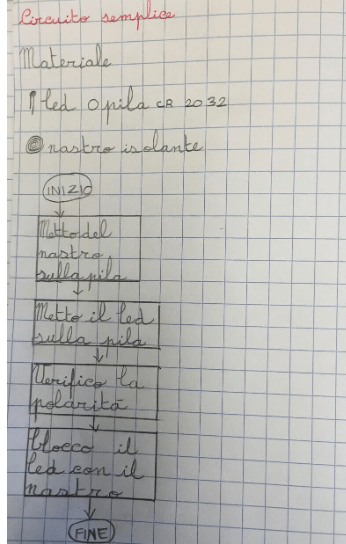 Circuito semplice
Materiale
led pila CR 2032
nastro isolante
INIZIO
Metto del
nastro
sulla pila
Metto il led
sulla pila
Verifico la
polarità
blocco il
led con il
nastro
FINE